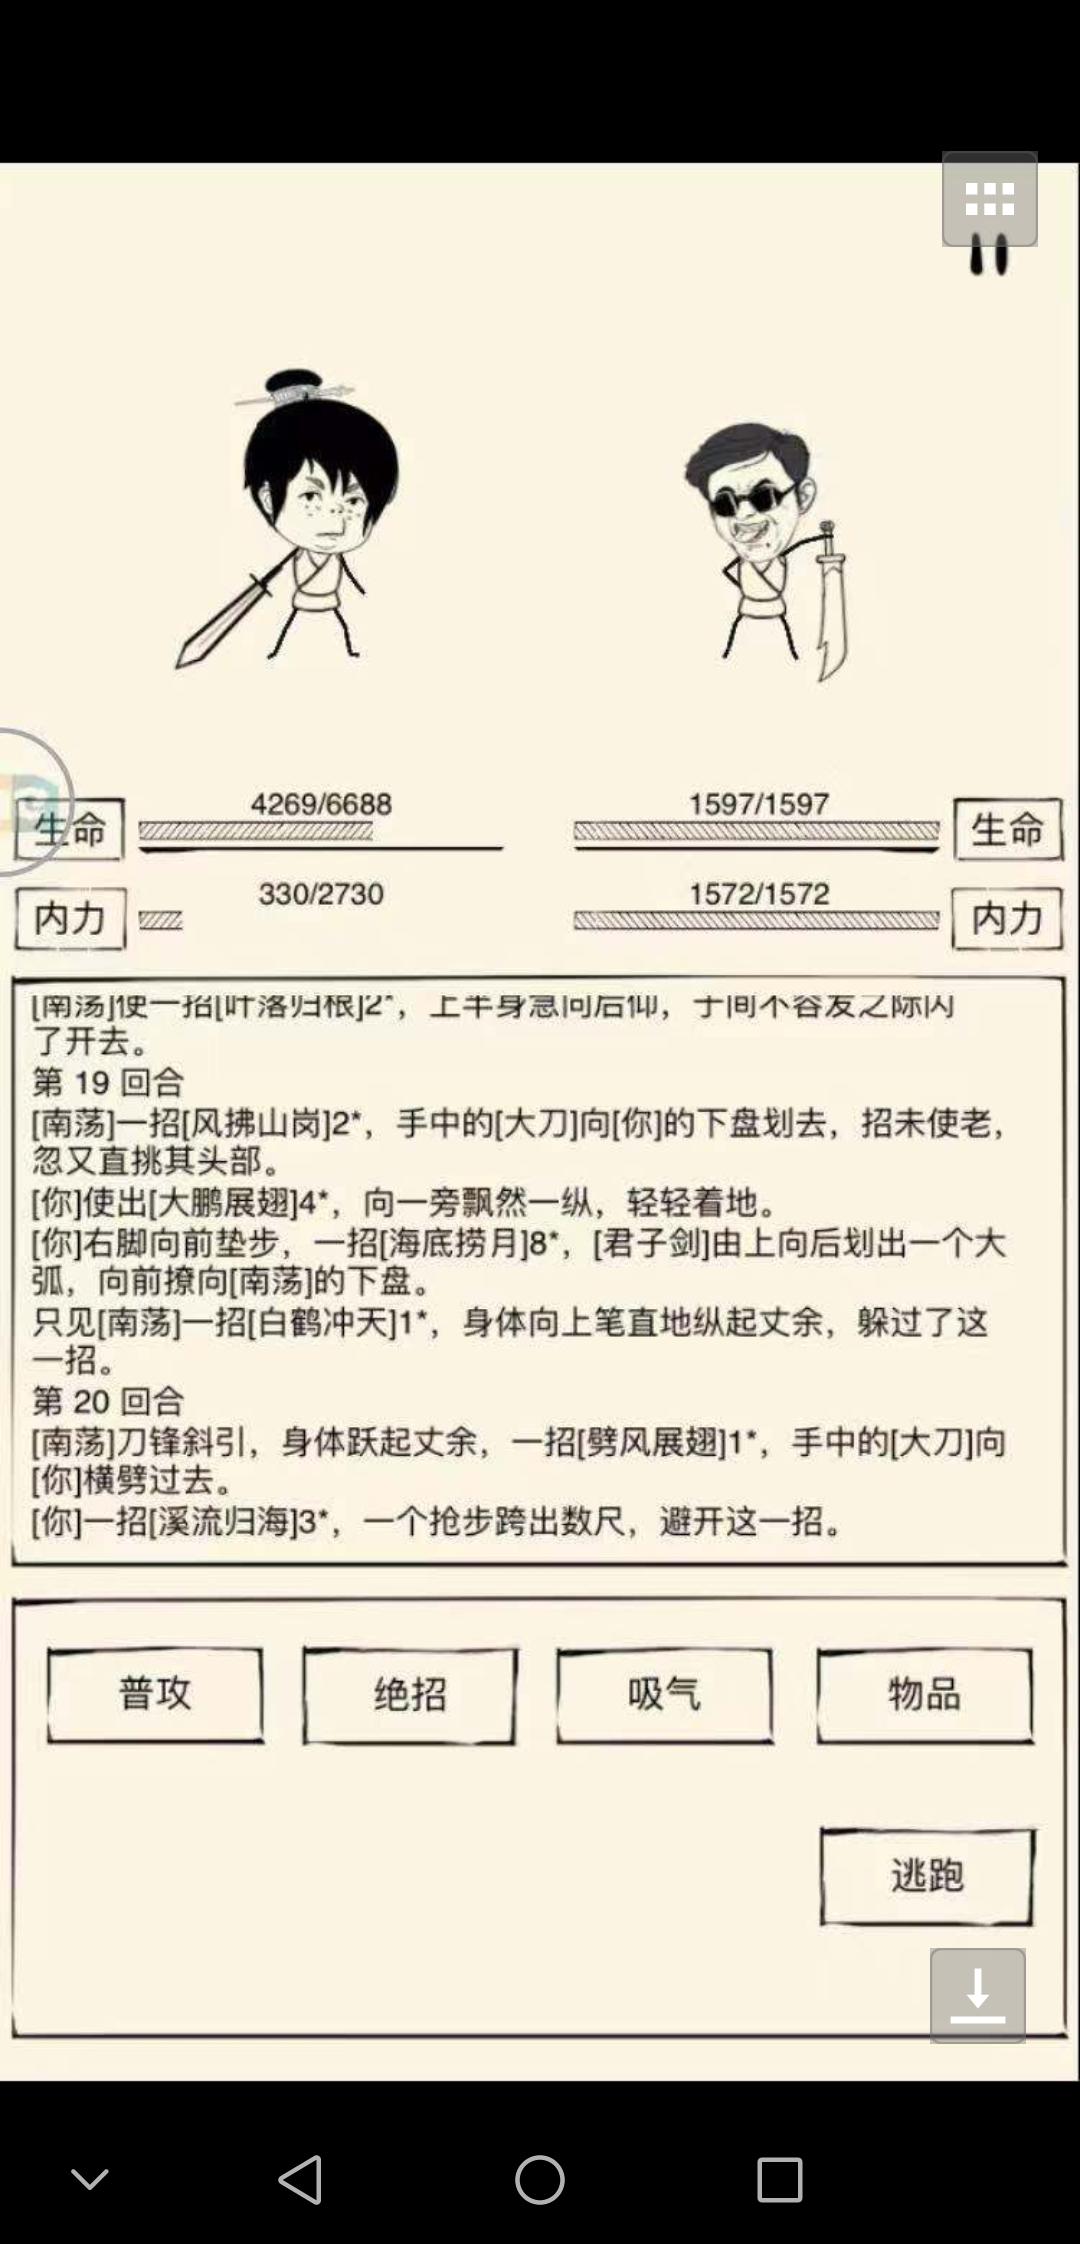 4269/6688
1597/1597
生命
生命
330/2730
1572/1572
内力
内力
[南荡]使一招[叶落归根]2*，上半身急向后仰，于间不容发之际闪
了开去。
第 19 回合
[南荡]一招[风拂山岗]2*，手中的[大刀]向[你]的下盘划去，招未使老，
忽又直挑其头部。
[你]使出[大鹏展翅]4*，向一旁飘然一纵，轻轻着地。
[你]右脚向前垫步，一招[海底捞月]8*，[君子剑]由上向后划出一个大
弧，向前撩向[南荡]的下盘。
只见[南荡]一招[白鹤冲天]1*，身体向上笔直地纵起丈余，躲过了这
一招。
第 20 回合
[南荡]刀锋斜引，身体跃起丈余，一招[劈风展翅]1*，手中的[大刀]向
[你]横劈过去。
[你]一招[溪流归海]3*，一个抢步跨出数尺，避开这一招。
普攻
绝招
吸气
物品
逃跑